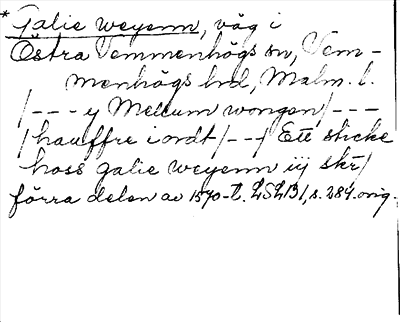 * Galie weyenn, väg i
Östra Vemmenhögs sn, Vem-
menhögs hd, Malm. l.
/--- y Mellum wongen/---
/hauffre i ordt/--/ Ett sticke
hoss galie weyenn iij skr/
förra delen av 1570-t. LSLB1, s. 284. orig.